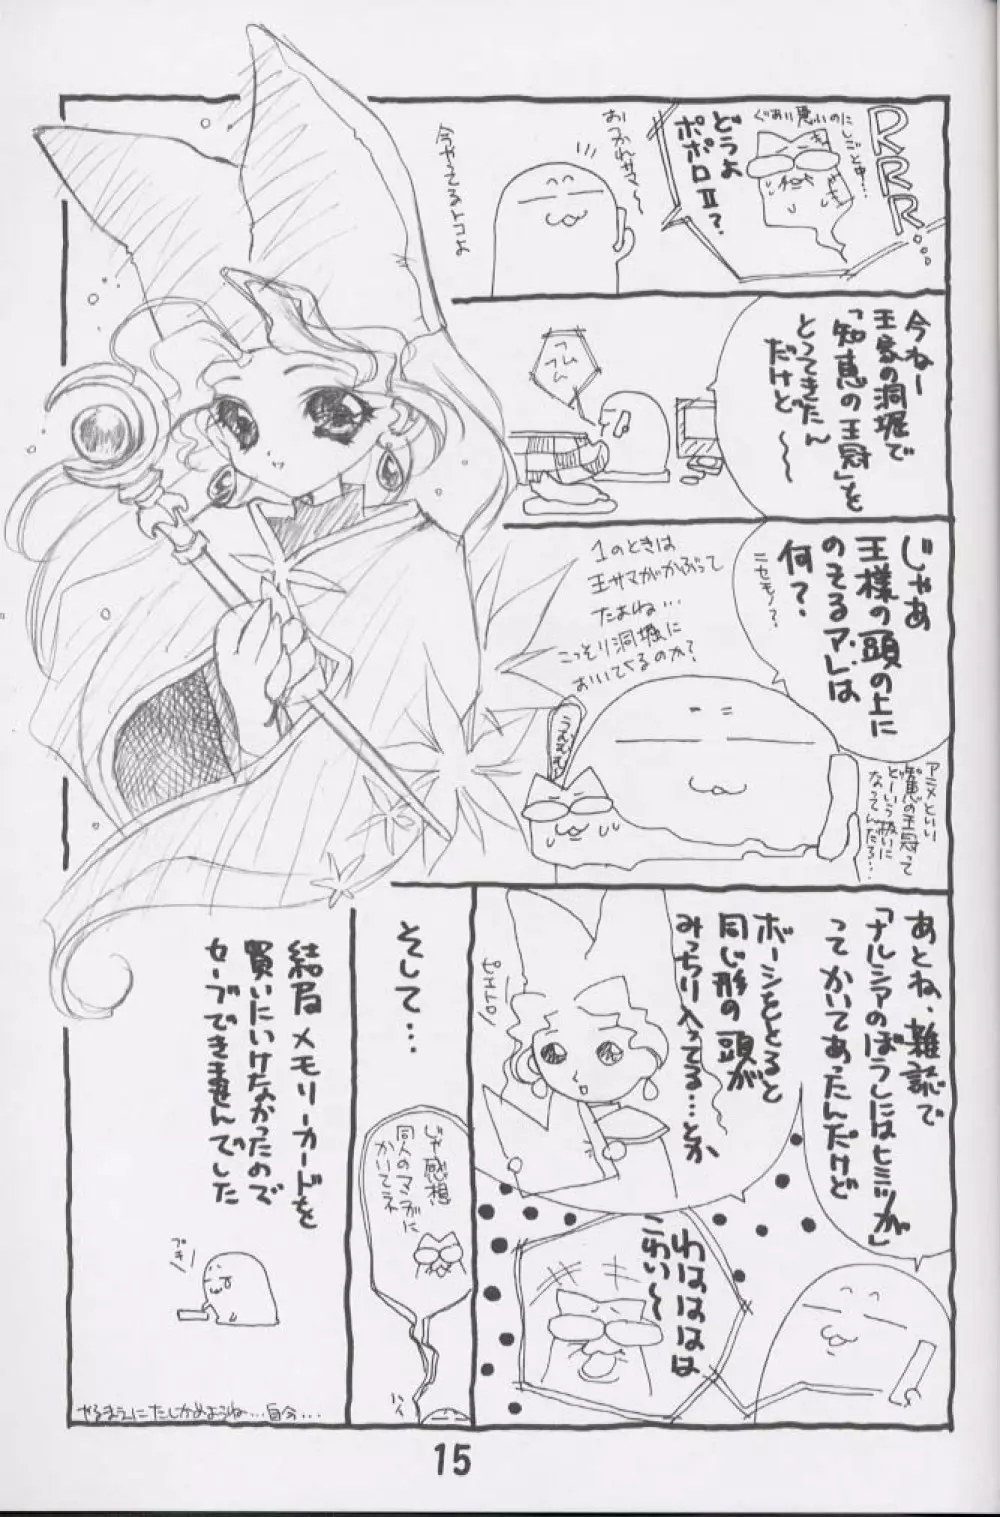 RRR...
ぐあい悪いのにしごと中…
どうよ
ポポロⅡ?
おつかれサマー
今やってるトコよ
今ねー
王家の洞堀で
「知恵の王冠」を
とってきたん
だけど〜〜
フム
フム
じゃあ
王様の頭の上に
のってるアレは
何?
ニセモノ?
1のときは
王サマがかぶって
たよね…
こっそり洞堀に
おいてくるのか?
ううむむ
アニメといい
知恵の王冠って
どーいう扱いに
なってんだろ…
あとね、雑誌で
「ナルシアのぼうしにはヒミツが」
ってかいてあったんだけど
ボーシをとると
同じ形の頭が
みっちり入ってる…とか
ピエトロ
わはははは
こわい〜
そして…
じゃ感想
同人のマンガに
かいてネ
ハイ
結局メモリーカードを
買いにいけなかったので
セーブできませんでした
プキ
やるまえにたしかめようね…自分…
15